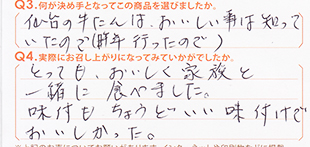 Q3.何が決め手となってこの商品を選びましたか。
仙台の牛たんは、おいしい事は知って
いたので(昨年行ったので)
Q4.実際にお召し上がりになってみていかがでしたか。
とっても、おいしく家族と
一緒に食べました。
味付もちょうどいい味付けで
おいしかった。